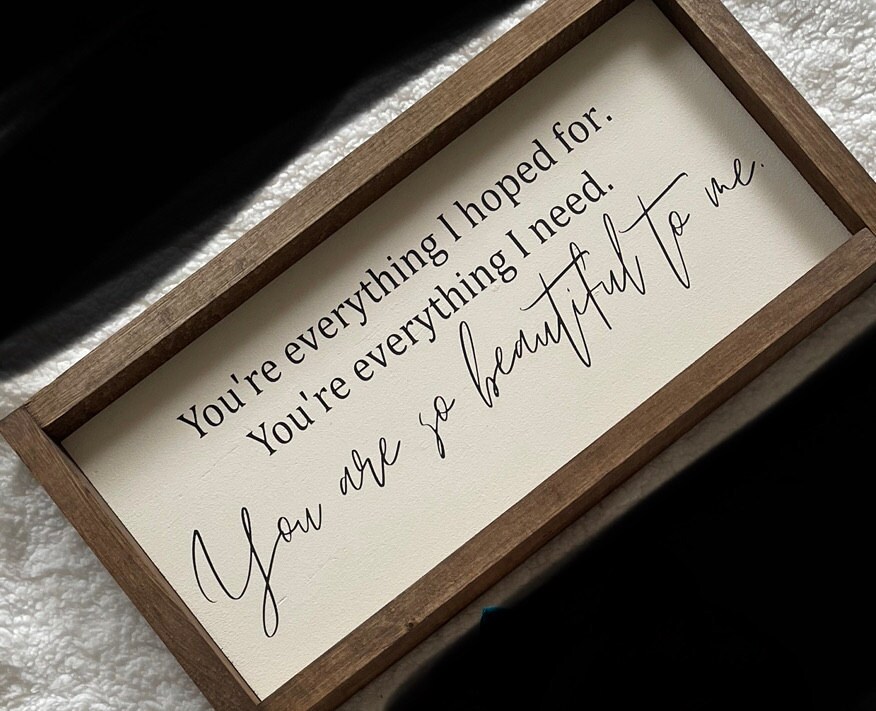 You're everything I hoped for.
You're everything I need.
You are so beautiful to me.